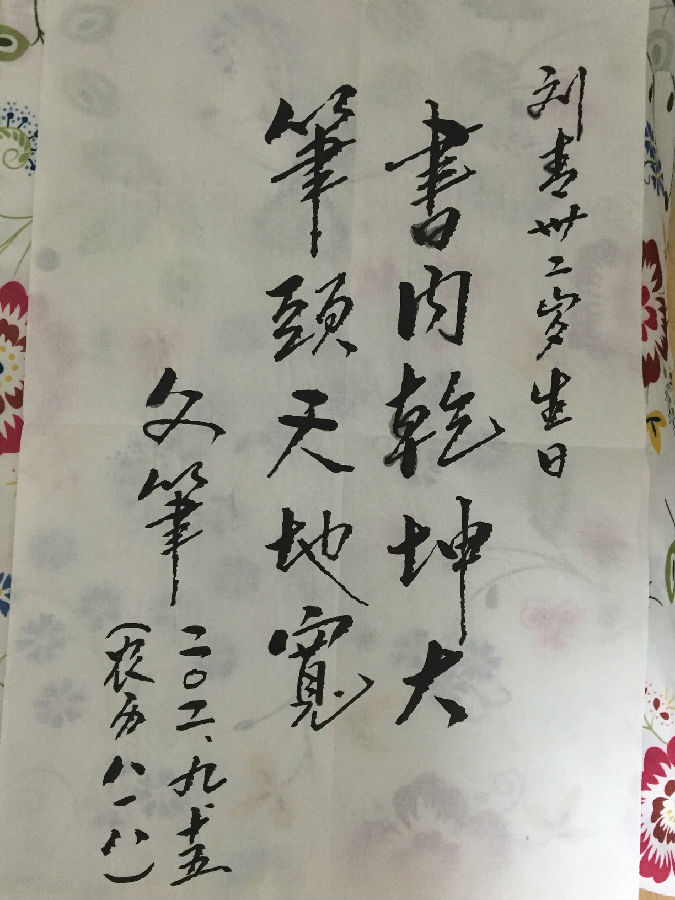 刘青卅二岁生日
書内乾坤大
筆頭天地寬
文筆
二〇一一、九、十五
（农历八一八）